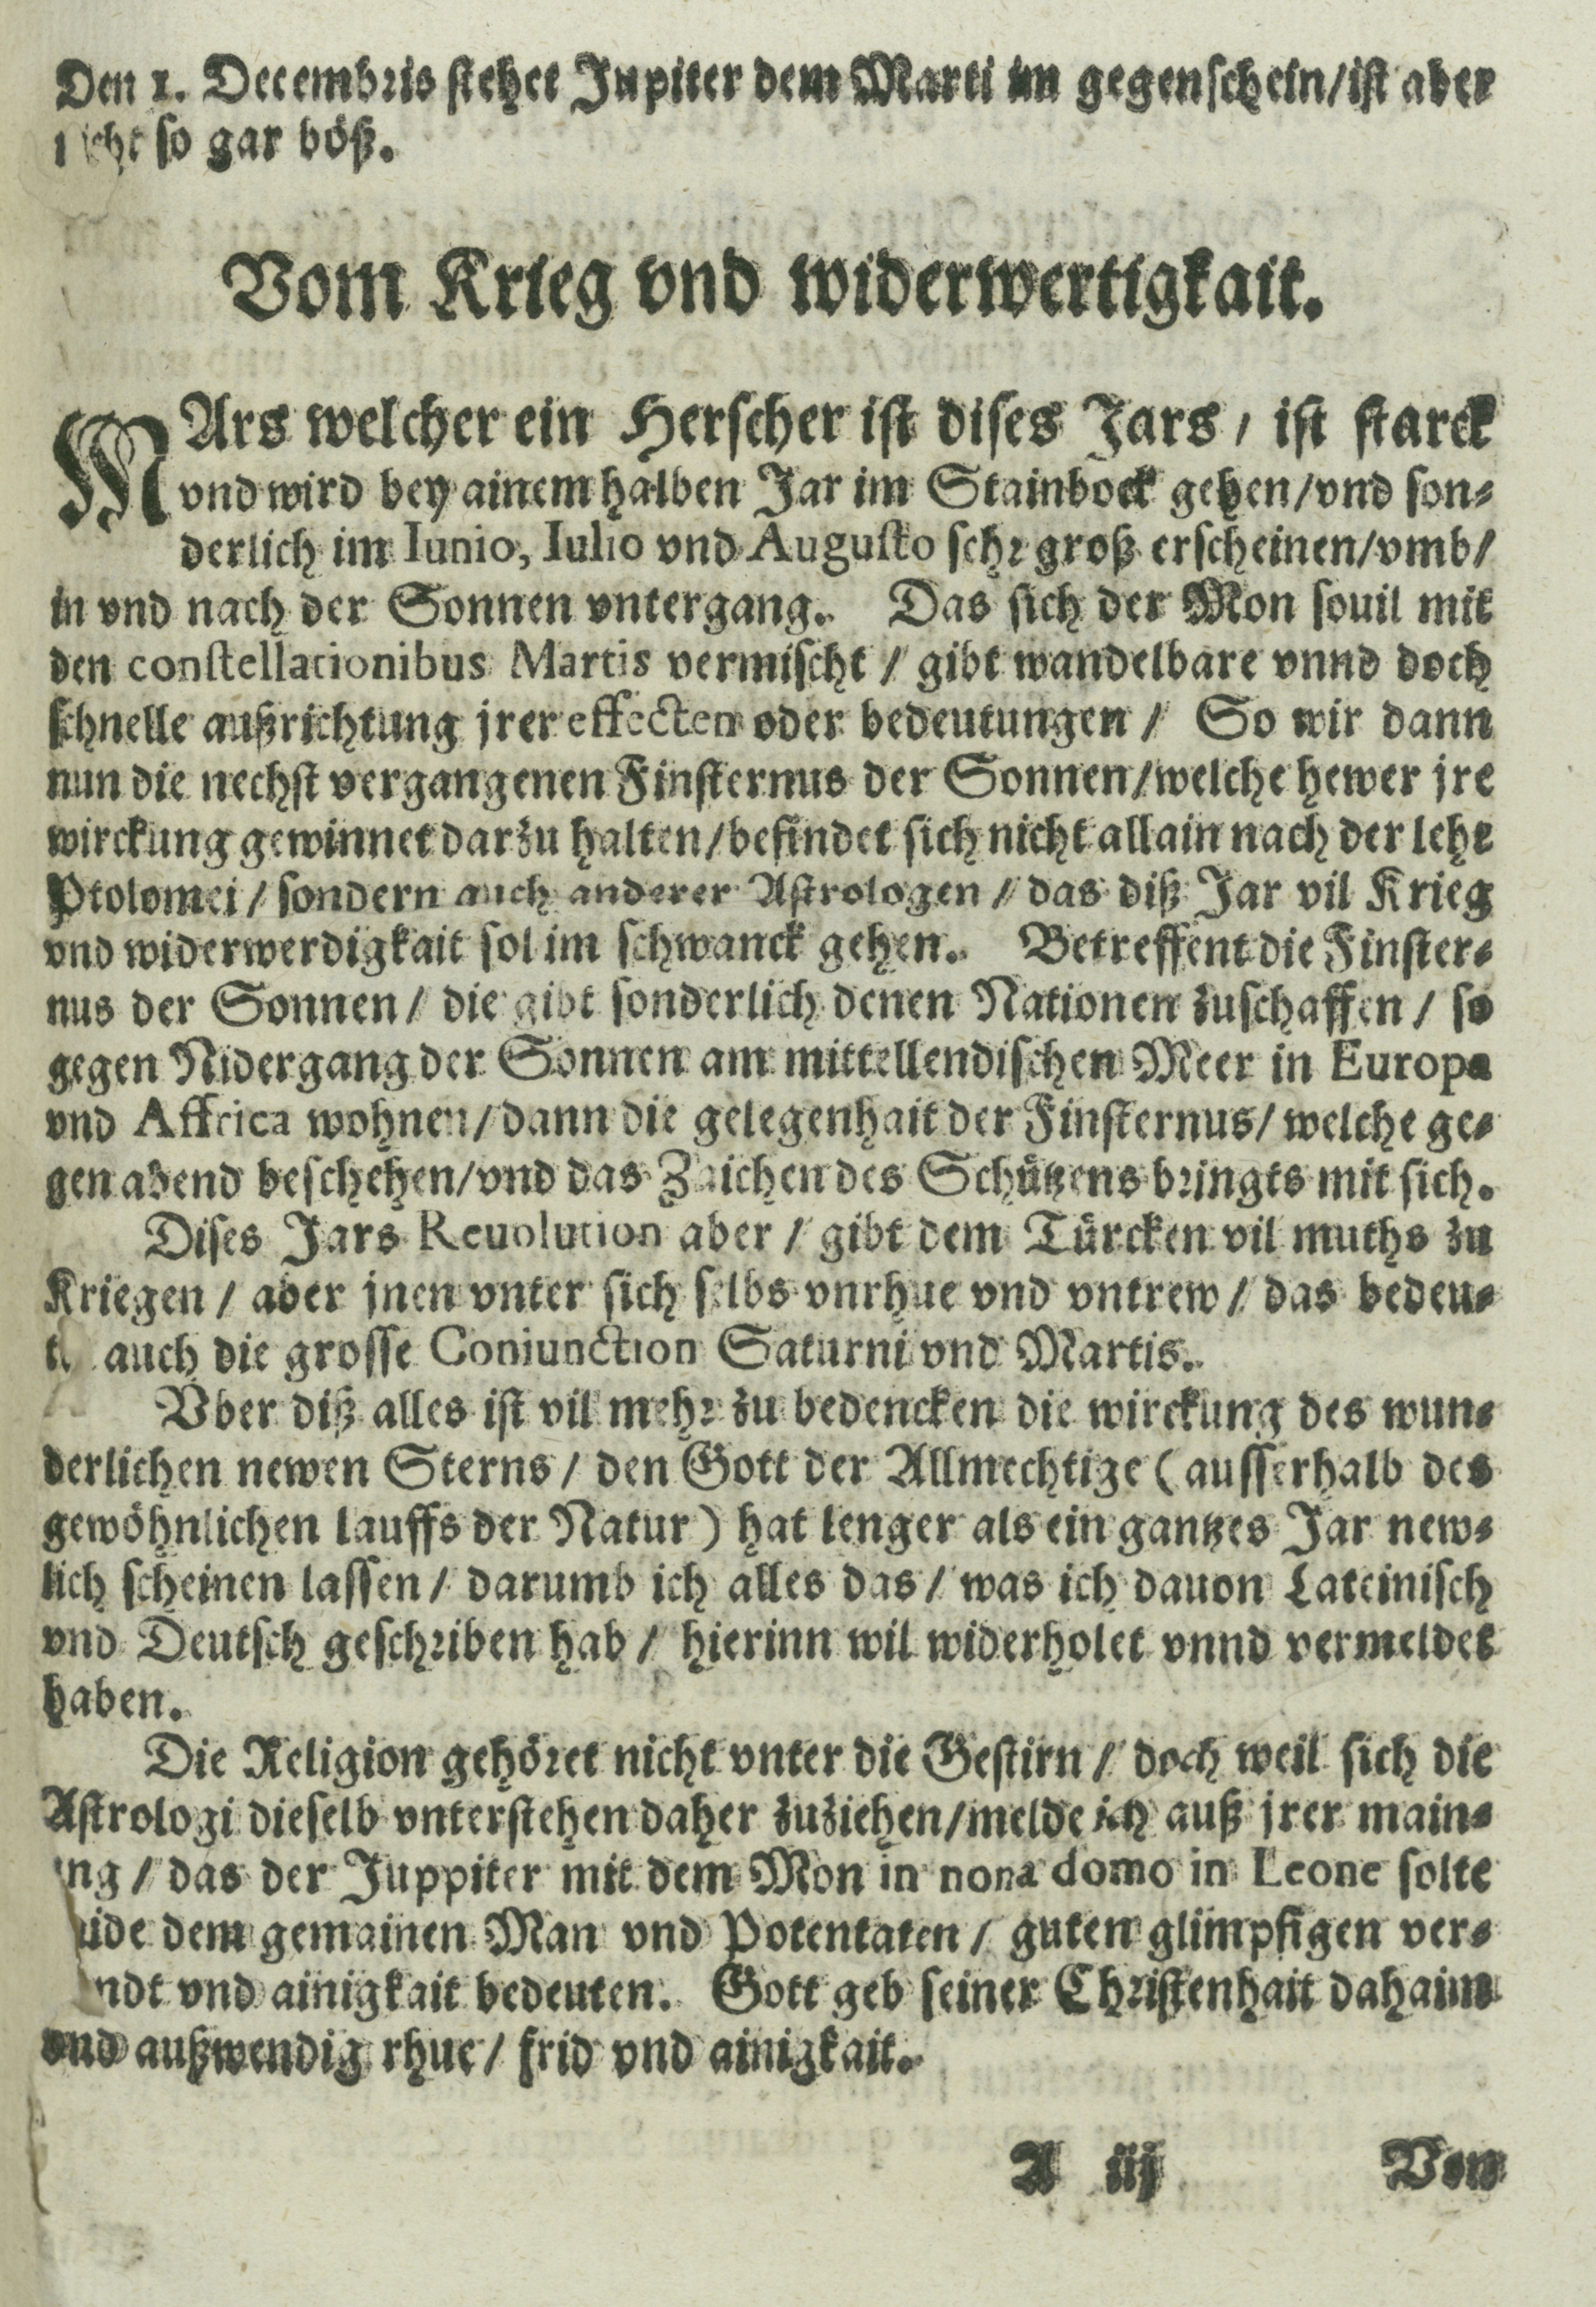 Den 1. Decembris stehet Jupiter dem Marti im gegenschein/ist aber
so gar böß.
Vom Krieg vnd widerwertigkait.
MArs welcher ein Herscher ist dises Jars / ist starck
vnd wird bey ainem halben Jar im Stainbock gehen/vnd son-
derlich im Iunio, Iulio vnd Augusto sehr groß erscheinen/vmb/
in vnd nach der Sonnen vntergang. Das sich der Mon souil mit
den constellationibus Martis vermischt / gibt wandelbare vnnd doch
schnelle außrichtung jrer effecten oder bedeutungen / So wir dann
nun die nechst vergangenen Finsternus der Sonnen/welche hewer jre
wirckung gewinnet darzu halten/befindet sich nicht allain nach der lehr
Ptolomei / sondern auch anderer Astrologen / das diß Jar vil Krieg
vnd widerwerdigkait sol im schwanck gehen. Betreffent die Finster-
nus der Sonnen / die gibt sonderlich denen Nationen zuschaffen / so
gegen Nidergang der Sonnen am mittellendischen Meer in Europa
vnd Affrica wohnen/dann die gelegenhait der Finsternus/welche ge-
gen abend beschehen/vnd das Zaichen des Schützens bringts mit sich.
Dises Jars Reuolution aber / gibt dem Türcken vil muths zu
Kriegen / aber jnen vnter sich selbs vnrhue vnd vntrew / das bedeu-
auch die grosse Coniunction Saturni vnd Martis.
Vber diß alles ist vil mehr zu bedencken die wirckung des wun-
derlichen newen Sterns / den Gott der Allmechtige (ausserhalb des
gewöhnlichen lauffs der Natur) hat lenger als ein gantzes Jar new-
lich scheinen lassen / darumb ich alles das / was ich dauon Lateinisch
vnd Deutsch geschriben hab / hierinn wil widerholet vnnd vermeldet
haben.
Die Religion gehöret nicht vnter die Gestirn / doch weil sich die
Astrologi dieselb vnterstehen daher zuziehen/melde ich auß jrer main-
ng / das der Juppiter mit dem Mon in nona domo in Leone solte
dem gemainen Man vnd Potentaten / guten glimpfigen ver-
vnd ainigkait bedeuten. Gott geb seiner Christenhait dahaim
vnd außwendig rhue / frid vnd ainigkait.
A iij Von